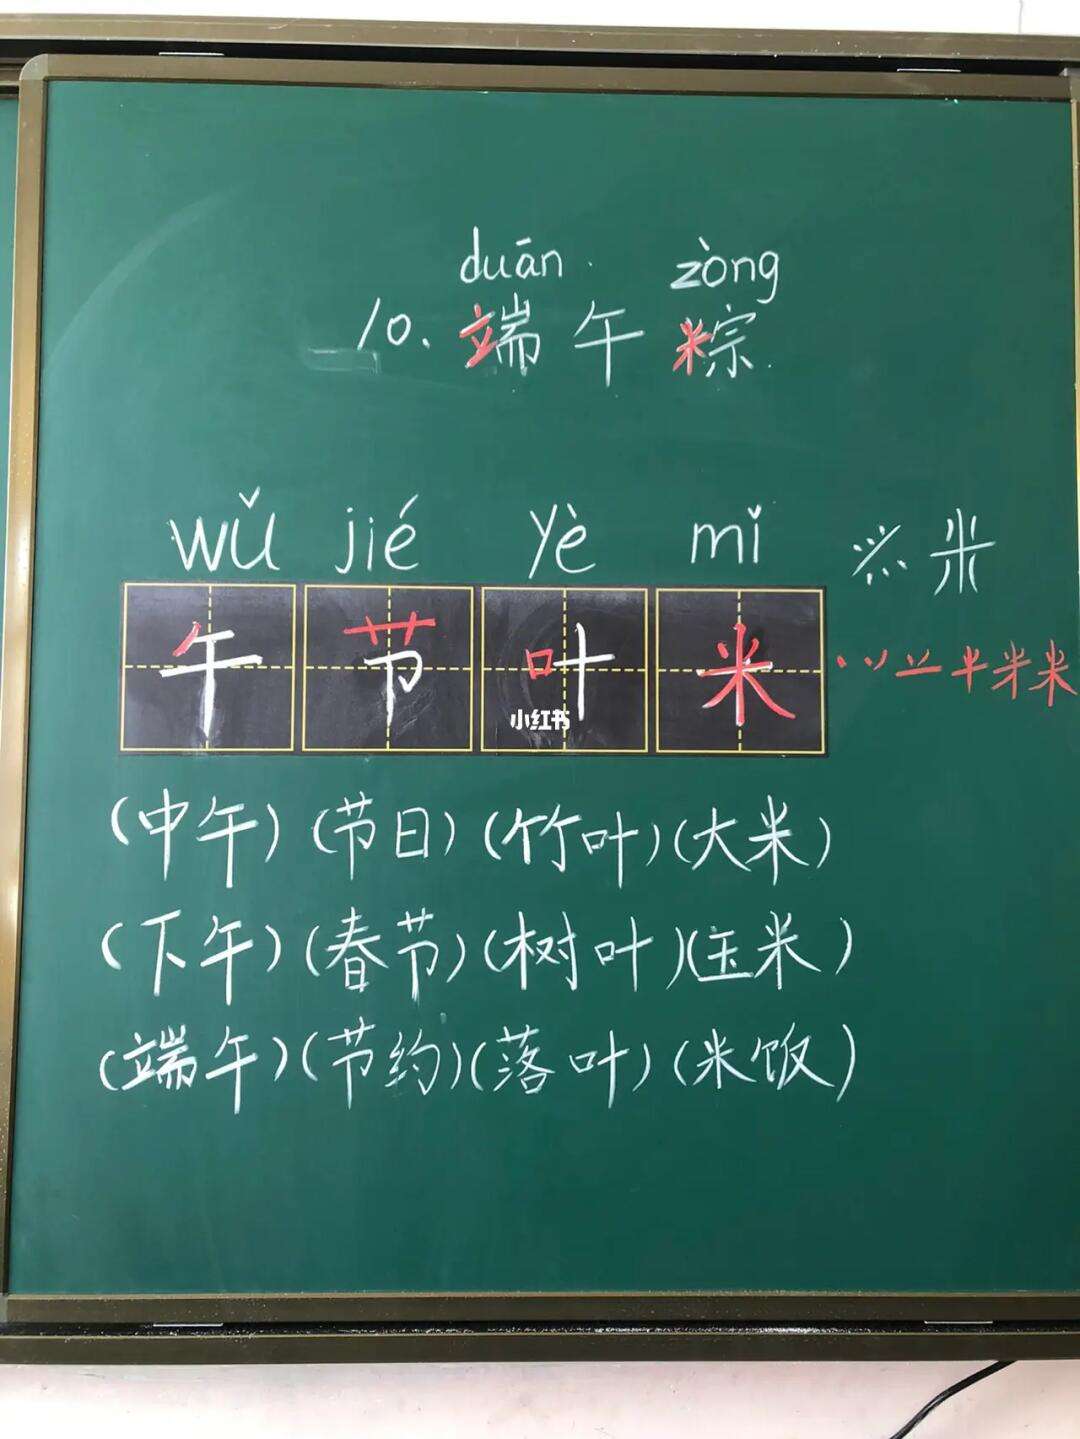 duān zòng
10. 端午粽
wǔ jié yè mǐ
米
午 节 叶 米
小红书
(中午) (节日) (竹叶) (大米)
(下午) (春节) (树叶) (玉米)
(端午) (节约) (落叶) (米饭)